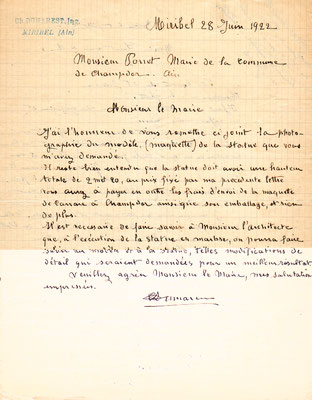 MIRIBEL (Ain)
Miribel 28 Juin 1922
Monsieur Porret Maire de la commune
de Champdor Ain
Monsieur le Maire
J'ai l'honneur de vous remettre ci joint la photo-
graphie du modèle, (maquette) de la statue que vous
m'avez demandé.
Il reste bien entendu que la statue doit avoir une hauteur
totale de 2 mèt 20, au prix fixé par ma précédente lettre
vous aurez à payer en outre les frais d'envoi de la maquette
de Carrare à Champdor ainsi que son emballage, et rien
de plus.
Il est nécessaire de faire savoir à Monsieur l'architecte
que, à l'exécution de la statue en marbre, on pourra faire
subir au modèle et à la statue, telles modifications de
détail qui seraient demandées pour un meilleur résultat
Veuillez agréer Monsieur le Maire, mes salutations
empressées.